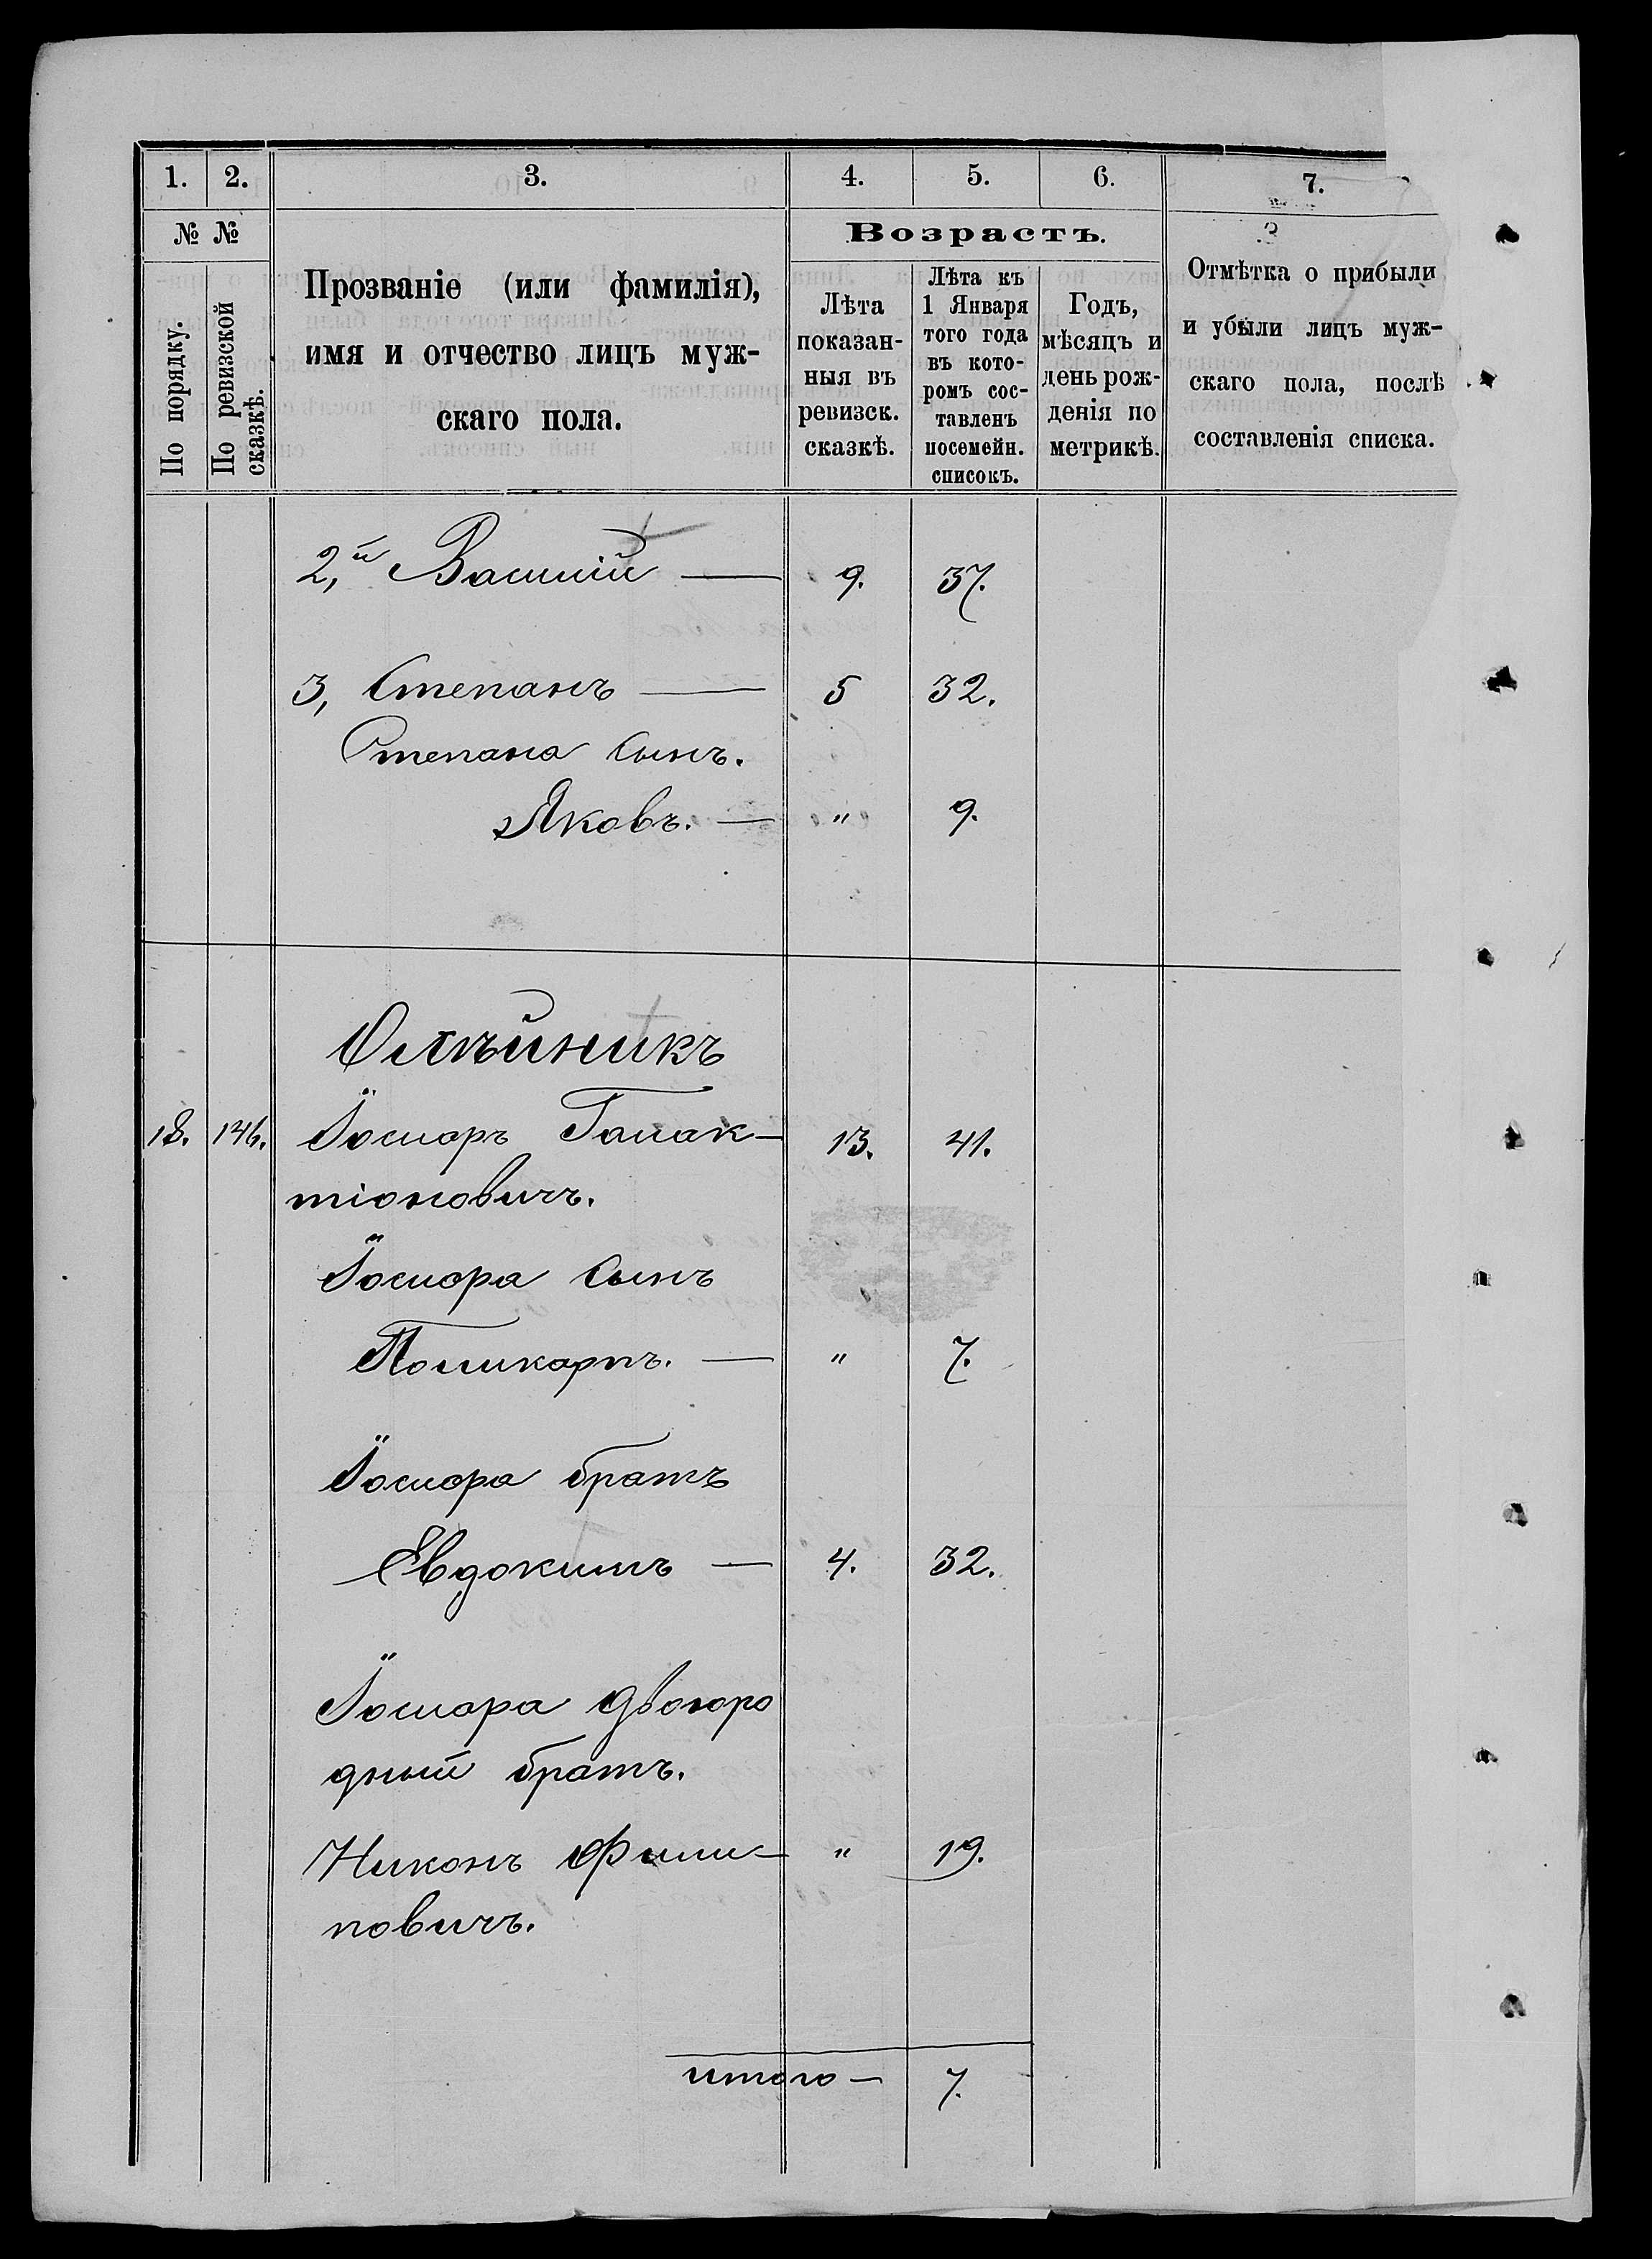 1. 2. 3. 4. 5. 6. 7.
№ №
По порядку.
По ревизской
сказкѣ.
Прозваніе (или фамилія),
имя и отчество лицъ муж-
скаго пола.
Возрастъ.
Лѣта
показан-
ныя въ
ревизск.
сказкѣ.
Лѣта къ
1 Января
того года
въ кото-
ромъ сос-
тавленъ
посемейн.
списокъ.
Годъ,
мѣсяцъ и
день рож-
денія по
метрикѣ.
Отмѣтка о прибыли
и убыли лицъ муж-
скаго пола, послѣ
составленія списка.
2,й Василій — 9. 37.
3, Степанъ — 5 32.
Степана сынъ.
Яковъ. — " 9.
Олѣйникъ
18. 146. Іосифръ Галак- 13. 41.
тіоновичъ.
Іосифра сынъ
Поликарпъ. — " 7.
Іосифра братъ
Евдокимъ — 4. 32.
Іосифра двоюро
дный братъ.
Никонъ Фили- " 19.
повичъ.
итого — 7.